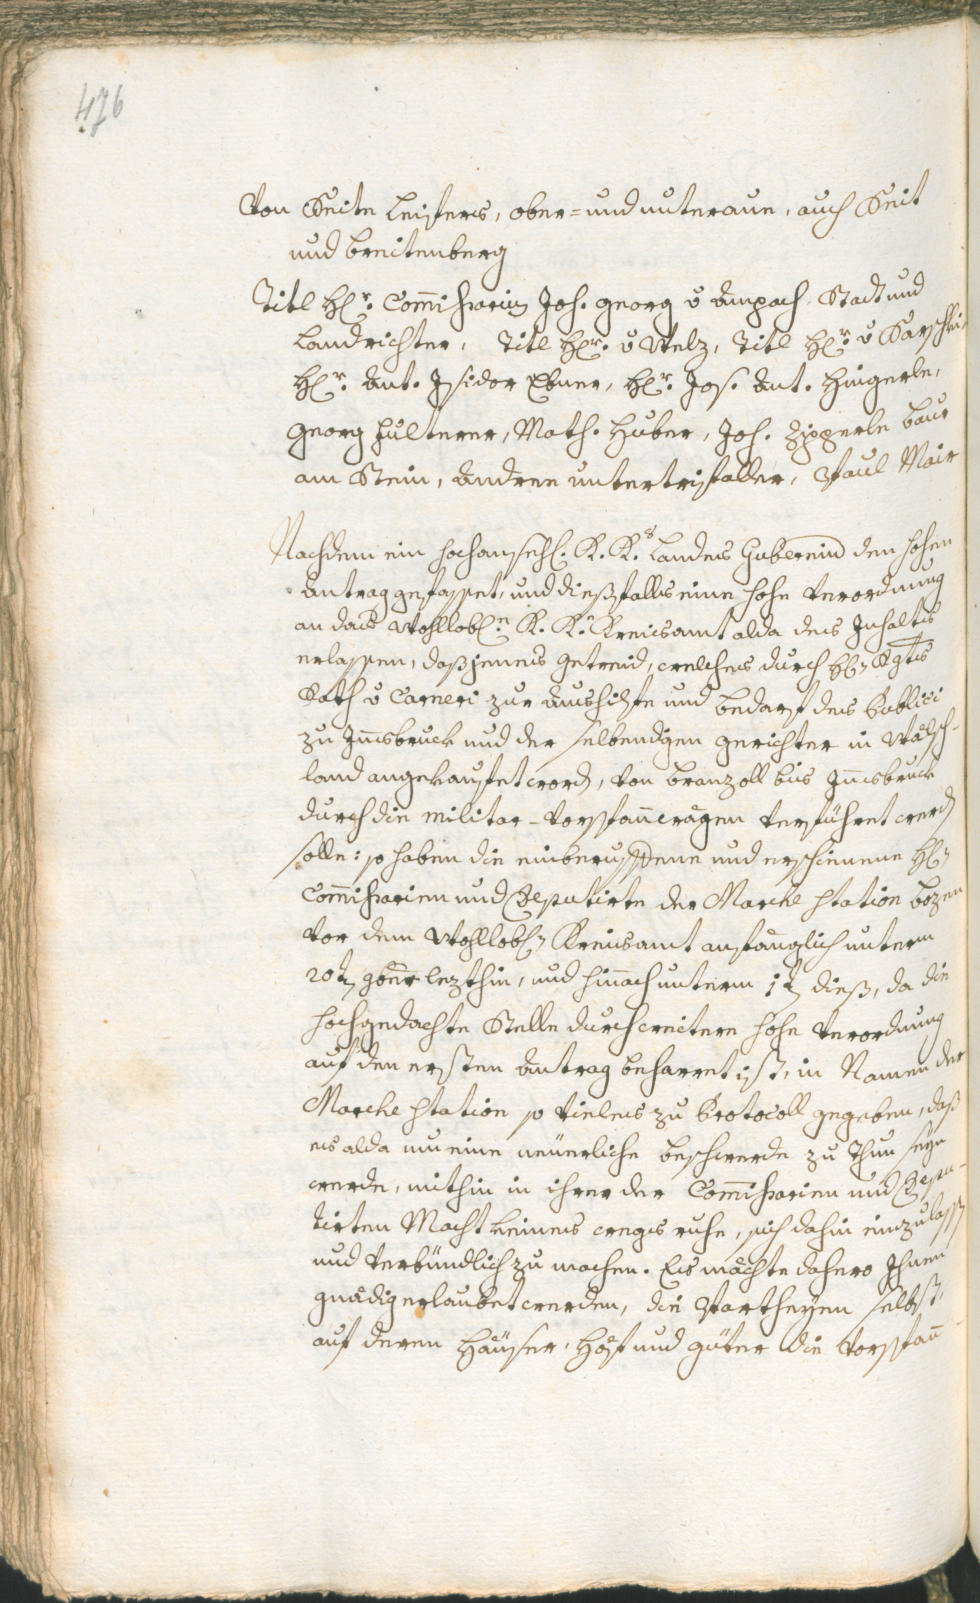 476
Von Seite Leifers, ober- und unteraue, auch Seit
und breitenberg
Titl H. Commissarien Joh. Georg v Ampach Stadt und
Landrichter, Titl H. v Welz, Titl H. v
H. Ant. Isidor Ebner, H. Jos. Ant. Hingerle,
Georg Hulterer, Math. Huber, Joh. Zipperle baur
am Stein, Andree untertrifaller, Paul Mair
Nachdem ein hochansehl. K. K. Landes Gubernium den hohen
Antrag gefasset, und dießfalls eine hohe Verordnung
an das Wohllobl. K. K. Kreisamt alda des Inhaltes
erlassen, daß jenes getreid, welches durch H.
Rath v Carneri zur Aushilfe und bedarf des Publici
zu Innsbruck und der selbendigen gerichter in Wälsch-
land angekaufet word, von branzoll bis Innsbruck
durch die militar-Vorspannwägen verführet werd
solle: so haben die einberuffene und erschienene H
Commissarien und Deputirte der Marche station bozen
vor dem Wohllobl Kreisamt anfänglich unterm
20t 9ber lezthin, und hinnach unterm 1t dieß, da die
hochgedachte Stelle durch weitere hohe Verordnung
auf den ersten Antrag beharret ist, in Namen der
Marche station so vieles zu Protocoll gegeben, daß
es alda um eine neüerliche beschwerde zu thun seyn
werde, mithin in ihrer der Commissarien und Depu-
tirten Macht keines wegs ruhe, sich dahin einzulassen
und verbündlich zu machen. Es möchte dahero Ihnen
gnädig erlaubet werden, die Partheyen selbst,
auf deren Häuser, Höf und güter die Vorspann-